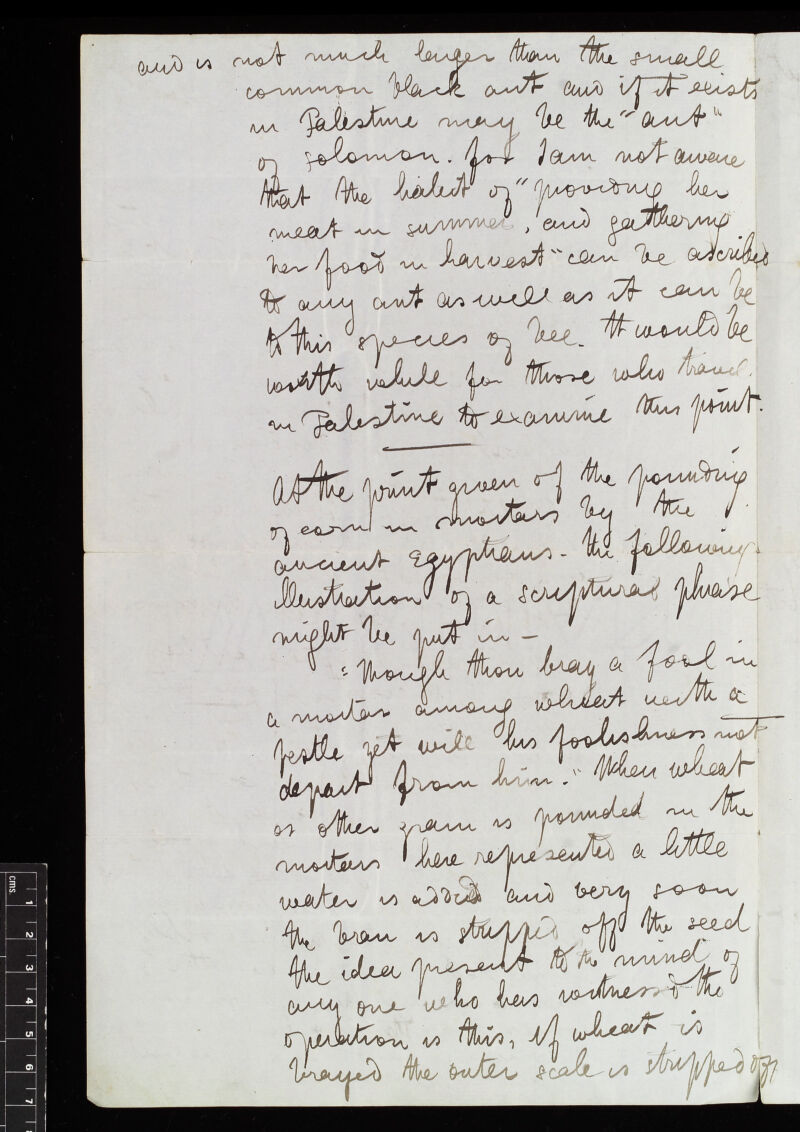 and is not much larger than the small
common black ant and if it exists
in Palestine may be the "ant"
of Solomon. for I am not aware
that the habit of "providing her
meat in summer, and gathering
her food in harvest" can be ascribed
to any ant as well as it can be
to this species of bee. It would be
worth while for those who travel
in Palestine to examine this point.
At the point given of the pounding
of corn in mortars by the
ancient Egyptians - the following
illustration of a scriptural phrase
might be put in -
"Though thou bray a fool in
a mortar among wheat with a
pestle yet will his foolishness not
depart from him." When wheat
or other grain is pounded in the
mortars here represented a little
water is added and very soon
the bran is stripped off the seed
the idea present to the mind of
any one who has witnessed the
operation is this, if wheat is
brayed the outer scale is stripped off,
cms
1
2
3
4
5
6
7